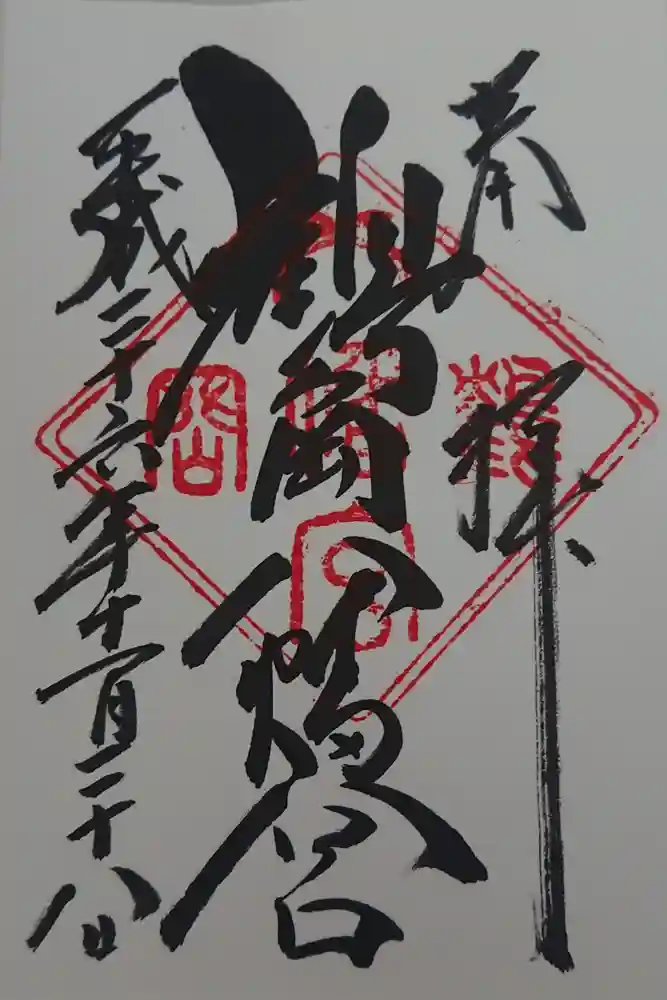 奉拝
鶴岡八幡宮
平成二十六年十一月二十八日